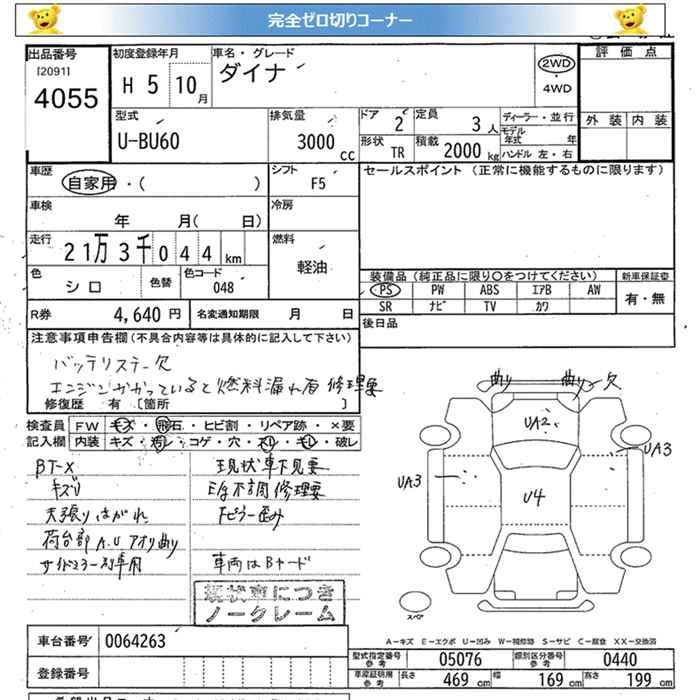 完全ゼロ切りコーナー
出品番号
[2091]
4055
初度登録年月
H 5 10月
車名・グレード
ダイナ
2WD
・
4WD
評価点
外装 内装
型式
U-BU60
排気量
3000 cc
ドア
2
定員
3 人
形状
TR
積載
2000 kg
ディーラー・並行
モデル年式 年
ハンドル 左・右
車歴
自家用・( )
シフト
F5
セールスポイント (正常に機能するものに限ります)
車検
年 月( 日)
冷房
走行
21万3千044 km
燃料
軽油
色
シロ
色替
色コード
048
装備品 (純正品に限り〇をつけてください)
新車保証書
PS PW ABS エアB AW
有・無
SR ナビ TV カワ
R券 4,640 円
名変通知期限 月 日
後日品
注意事項申告欄 (不具合内容等は具体的に記入して下さい)
バッテリステー欠
エンジンかかっていると燃料漏れ有 修理要
修復歴 有 [箇所 ]
検査員
記入欄
FW キズ・飛石・ヒビ割・リペア跡・×要
内装 キズ・汚レ・コゲ・穴・スリ・キレ・破レ
BT-X
キズU
天張りはがれ
荷台部 A.U アオリ曲り
サイドミラー別車用
現状車下見要
E/g不調 修理要
Fピラー歪み
車両はBヤード
現状車につき
ノークレーム
曲り
曲り 欠
UA2
UA3
UA3
U4
スペア
車台番号 0064263
登録番号
A-キズ E-エクボ U-凹み W-補修跡 S-サビ C-腐食 XX-交換済
型式指定番号
参考
05076
類別区分番号
参考
0440
車庫証明用
参考
長さ 469 cm 幅 169 cm 高さ 199 cm